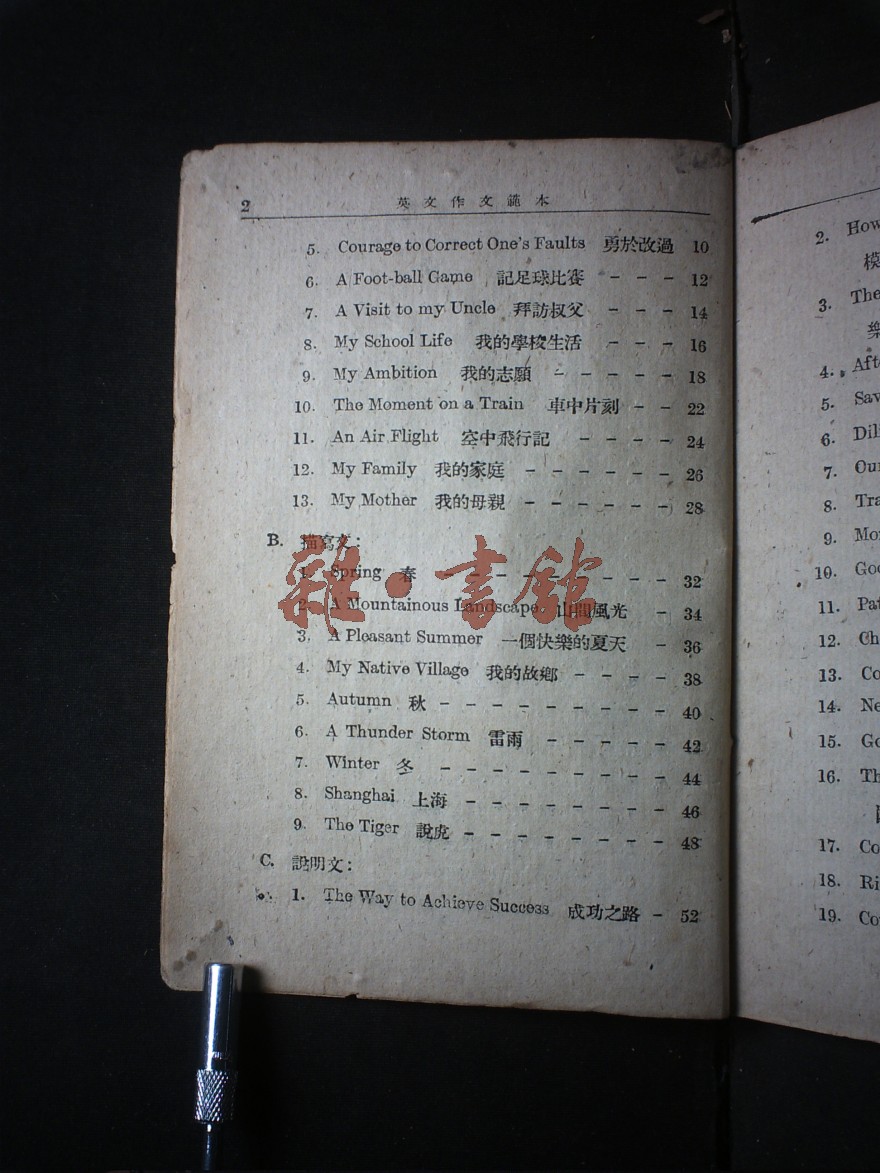 2 英文作文範本
5. Courage to Correct One's Faults 勇於改過 10
6. A Foot-ball Game 記足球比賽 - - - 12
7. A Visit to my Uncle 拜訪叔父 - - - 14
8. My School Life 我的學校生活 - - - 16
9. My Ambition 我的志願 - - - - - 18
10. The Moment on a Train 車中片刻 - - 22
11. An Air Flight 空中飛行記 - - - - 24
12. My Family 我的家庭 - - - - - - 26
13. My Mother 我的母親 - - - - - - 28
B. 描寫文:
1. Spring 春 - - - - - - - - - 32
2. A Mountainous Landscape 山間風光 - 34
3. A Pleasant Summer 一個快樂的夏天 - 36
4. My Native Village 我的故鄉 - - - - 38
5. Autumn 秋 - - - - - - - - - 40
6. A Thunder Storm 雷雨 - - - - - 42
7. Winter 冬 - - - - - - - - - 44
8. Shanghai 上海 - - - - - - - - 46
9. The Tiger 說虎 - - - - - - - - 48
C. 說明文:
1. The Way to Achieve Success 成功之路 - 52
雜·書館
2. How
模
3. The
樂
4.
5.
6.
7. Our
8.
9.
10.
11.
12.
13.
14.
15.
16.
17.
18.
19.